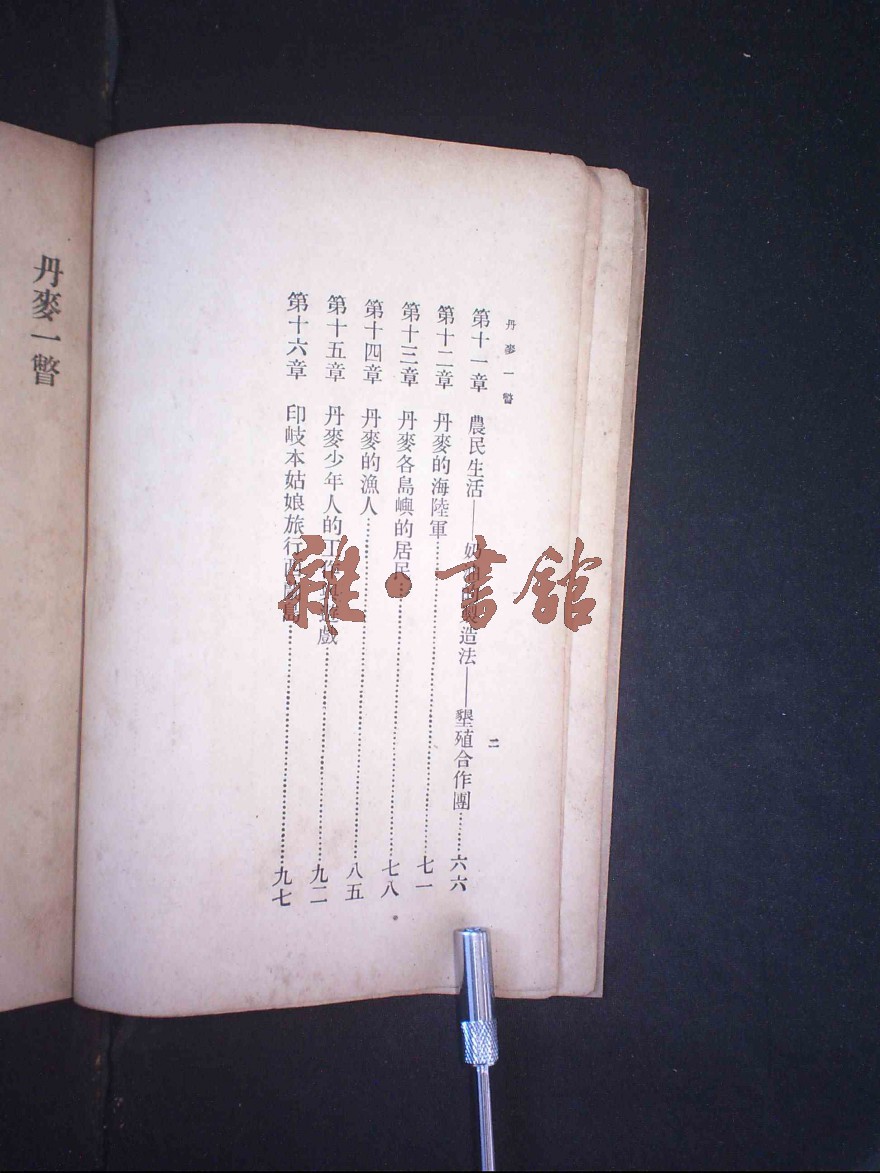 丹麥一瞥
二
第十一章 農民生活——奶油的製造法——墾殖合作團……六六
第十二章 丹麥的海陸軍……七一
第十三章 丹麥各島嶼的居民……七八
第十四章 丹麥的漁人……八五
第十五章 丹麥少年人的工作與遊戲……九二
第十六章 印歧本姑娘旅行西 島……九七
丹麥一瞥
雜·書館